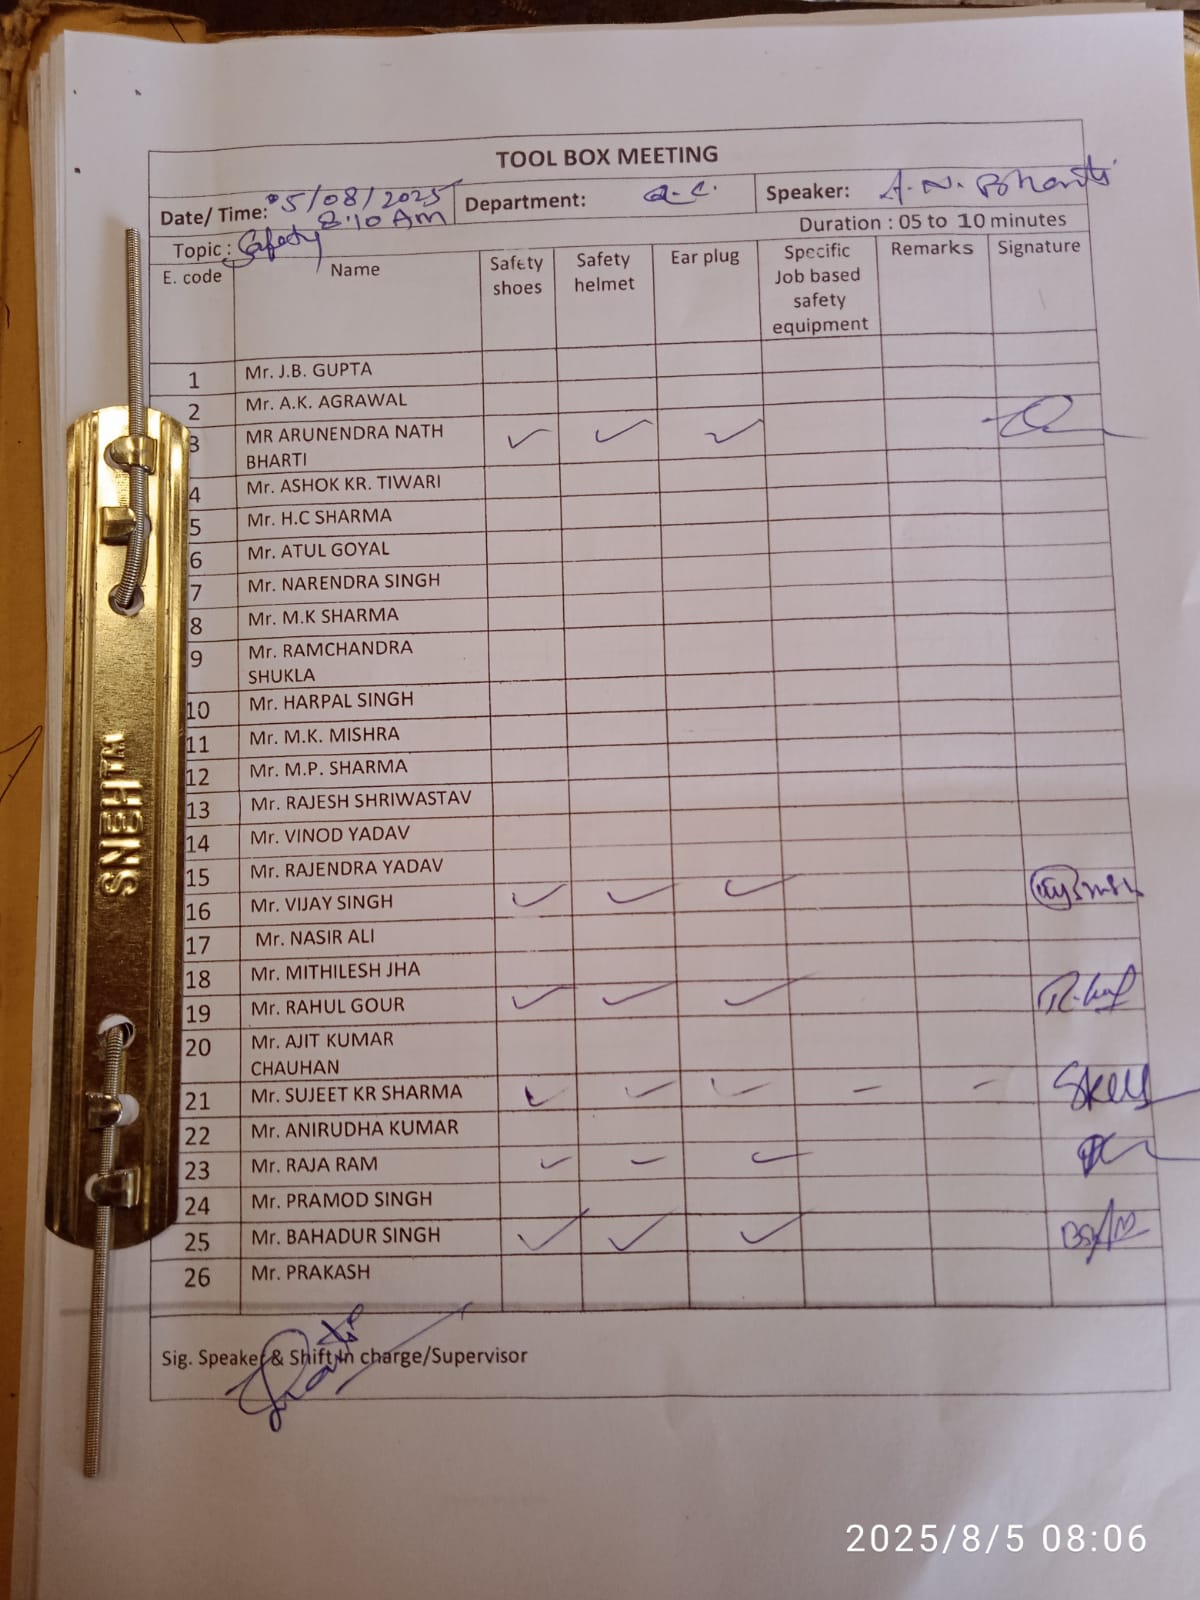 TOOL BOX MEETING
Date/ Time: 05/08/2025 8:10 AM Department: Q.C. Speaker: A. N. Bharti
Topic : Safety Duration : 05 to 10 minutes
E. code Name Safety shoes Safety helmet Ear plug Specific Job based safety equipment Remarks Signature
1 Mr. J.B. GUPTA
2 Mr. A.K. AGRAWAL
3 MR ARUNENDRA NATH BHARTI ✓ ✓ ✓
4 Mr. ASHOK KR. TIWARI
5 Mr. H.C SHARMA
6 Mr. ATUL GOYAL
7 Mr. NARENDRA SINGH
8 Mr. M.K SHARMA
9 Mr. RAMCHANDRA SHUKLA
10 Mr. HARPAL SINGH
11 Mr. M.K. MISHRA
12 Mr. M.P. SHARMA
13 Mr. RAJESH SHRIWASTAV
14 Mr. VINOD YADAV
15 Mr. RAJENDRA YADAV
16 Mr. VIJAY SINGH ✓ ✓ ✓
17 Mr. NASIR ALI
18 Mr. MITHILESH JHA
19 Mr. RAHUL GOUR ✓ ✓ ✓
20 Mr. AJIT KUMAR CHAUHAN
21 Mr. SUJEET KR SHARMA ✓ ✓ ✓ – –
22 Mr. ANIRUDHA KUMAR
23 Mr. RAJA RAM ✓ ✓ ✓
24 Mr. PRAMOD SINGH
25 Mr. BAHADUR SINGH ✓ ✓ ✓
26 Mr. PRAKASH
Sig. Speaker & Shift in charge/Supervisor
SNEH™
2025/8/5 08:06